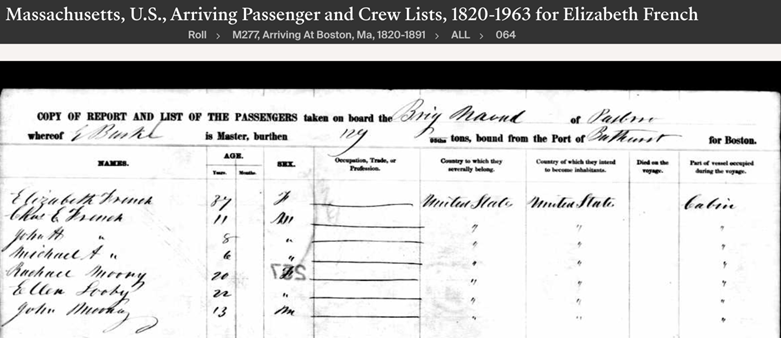 Massachusetts, U.S., Arriving Passenger and Crew Lists, 1820-1963 for Elizabeth French
Roll > M277, Arriving At Boston, Ma, 1820-1891 > ALL > 064
COPY OF REPORT AND LIST OF THE PASSENGERS taken on board the Brig of
whereof E is Master, burthen 129 tons, bound from the Port of Bathurst for Boston.
NAMES. AGE. SEX. Occupation, Trade, or Profession. Country to which they severally belong. Country of which they intend to become inhabitants. Died on the voyage. Part of vessel occupied during the voyage.
Years. Months.
Elizabeth French 37 F United States United States Cabin
Chas E French 11 M " " "
John H " 8 " " " "
Michael A " 6 " " " "
Rachael Moony 20 F " " "
257
Ellen 22 " " " "
John Moony 13 M " " "